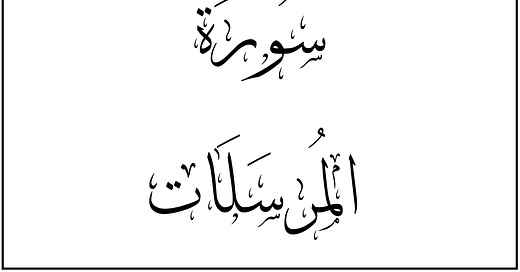 سُورَة
المُرسَلَات